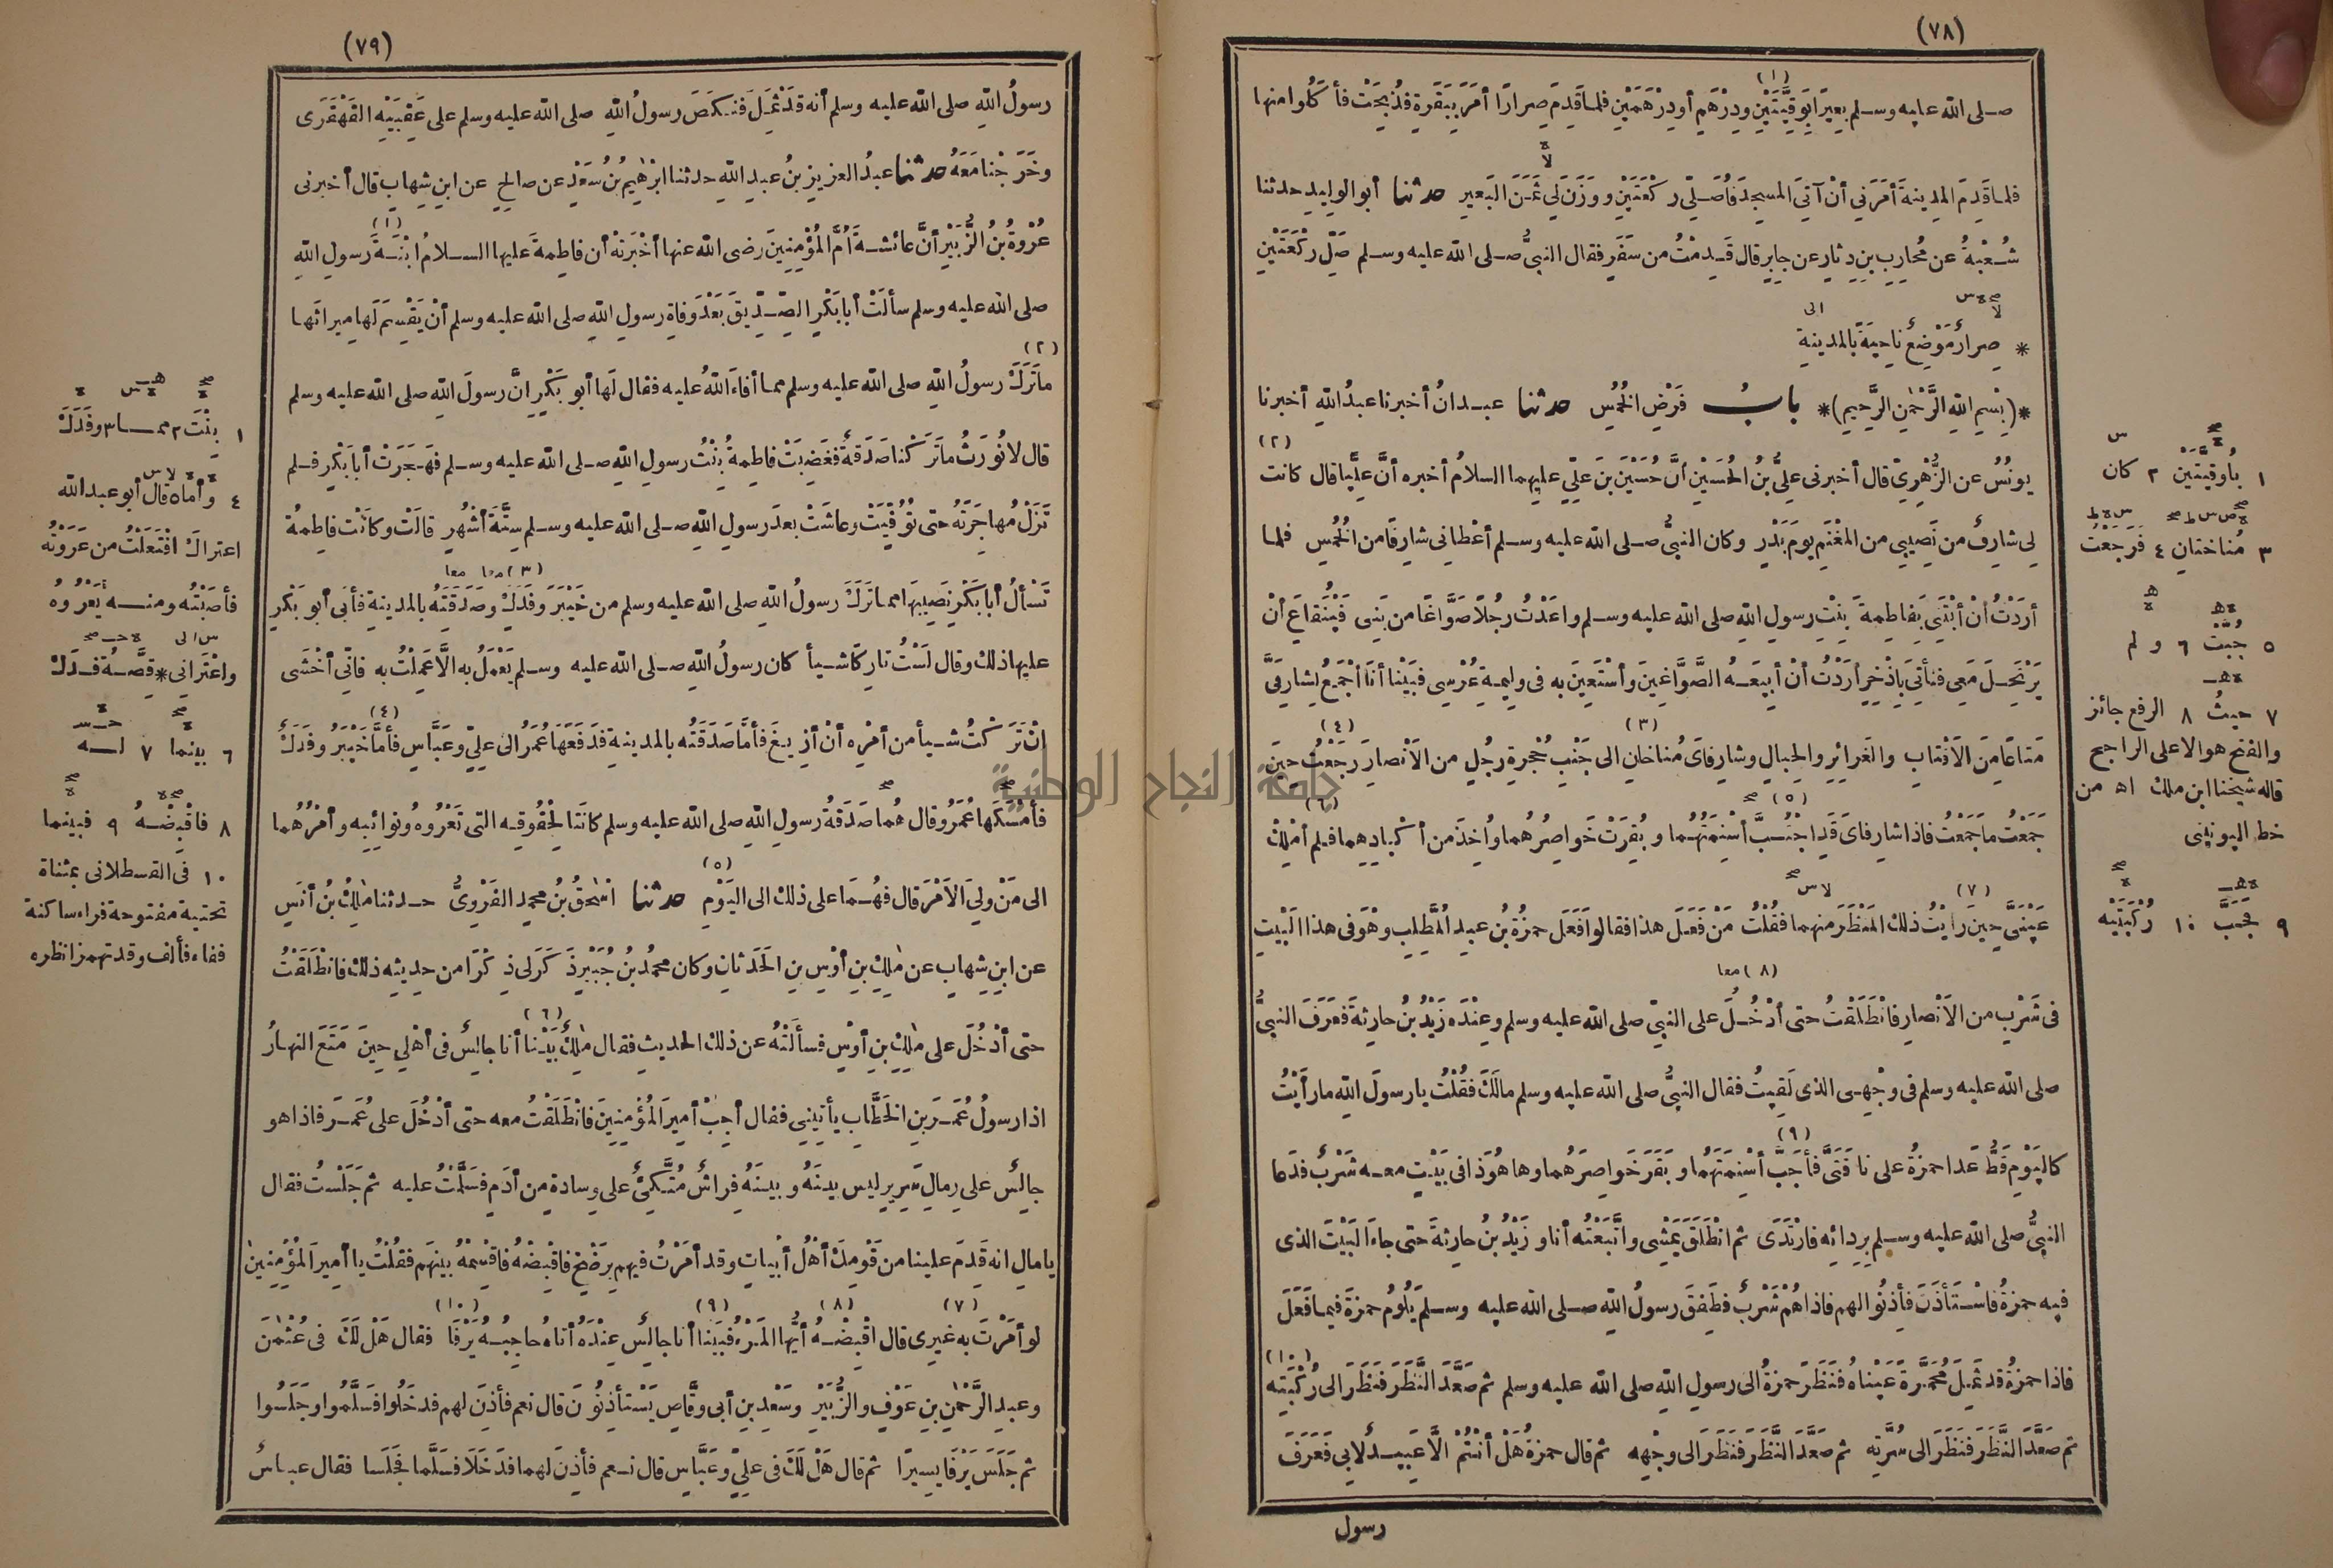 (٧٨)
صلى الله عليه وسلم بعيرًا بوَقِيَّتَيْنِ ودِرْهَمٍ أو دِرْهَمَيْنِ فلما قَدِمَ صِرارًا أمَرَ بِبَقَرَةٍ فذُبِحَتْ فأكَلُوا منها
فلما قَدِمَ المدِينةَ أمَرَنِي أنْ آتِيَ المسجِدَ فأُصَلِّيَ ركْعَتَيْنِ ووَزَنَ لِي ثَمَنَ البَعيرِ حدثنا أبو الوليدِ حدثنا
شُعْبةُ عن مُحارِبِ بنِ دِثارٍ عن جابِرٍ قال قَدِمْتُ من سَفَرٍ فقال النبيُّ صلى الله عليه وسلم صَلِّ رَكْعَتَيْنِ
* صِرارٌ مَوْضِعٌ ناحِيَةً بالمدينةِ
*(بِسْمِ اللهِ الرَّحْمٰنِ الرَّحِيمِ)* بابُ فَرْضِ الخُمُسِ حدثنا عبدانُ أخبرنا عبدُ اللهِ أخبرنا
يونُسُ عن الزُّهْرِيِّ قال أخبرني عليُّ بنُ الحُسَيْنِ أنَّ حُسَيْنَ بنَ عليٍّ عليهما السلامُ أخبره أنَّ عَلِيًّا قال كانت
لِي شارِفٌ من نَصِيبِي من المَغْنَمِ يومَ بَدْرٍ وكان النبيُّ صلى الله عليه وسلم أعْطاني شارِفًا من الخُمُسِ فلما
أرَدْتُ أنْ أبْتَنِيَ بِفاطِمةَ بِنْتِ رسولِ اللهِ صلى الله عليه وسلم واعَدْتُ رجُلًا صَوَّاغًا من بَنِى قَيْنُقاعَ أنْ
يَرْتَحِلَ مَعِي فنأتِيَ بِإذْخِرٍ أرَدْتُ أنْ أبِيعَهُ الصَّوَّاغِينَ وأسْتَعِينَ به في وليمةِ عُرْسِي فبَيْنا أنَا أجْمَعُ لِشارِفَيَّ
مَتاعًا مِنَ الأقْتابِ والغَرائِرِ والحِبالِ وشارِفايَ مُناخانِ الى جَنْبِ حُجْرةِ رجُلٍ من الأنْصارِ رَجَعْتُ حِينَ
جَمَعْتُ ما جَمَعْتُ فاذا شارِفايَ قَدِ اجْتُبَّ أسْنِمَتُهُما وبُقِرَتْ خَواصِرُهُما وأُخِذَ من أكْبادِهِما فلم أمْلِكْ
عَيْنَيَّ حِينَ رَأيْتُ ذلك المَنْظَرَ منهما فقُلْتُ مَنْ فَعَلَ هذا فقالوا فَعَلَ حمزةُ بنُ عبدِ المُطَّلِبِ وهْوَ في هذا البَيْتِ
فى شَرْبٍ من الأنْصارِ فانْطَلَقْتُ حتى أدْخُلَ على النبيِّ صلى الله عليه وسلم وعِنْدَه زَيْدُ بنُ حارِثةَ فعَرَفَ النبيُّ
صلى الله عليه وسلم في وجْهِي الذى لَقِيتُ فقال النبيُّ صلى الله عليه وسلم مالَكَ فقُلْتُ يا رسولَ اللهِ ما رأيْتُ
كاليَوْمِ قَطُّ عَدا حمزةُ على ناقَتَيَّ فأجَبَّ أسْنِمَتَهُما وبَقَرَ خَواصِرَهُما وها هُوَ ذا في بَيْتٍ معه شَرْبٌ فدَعا
النبيُّ صلى الله عليه وسلم بِرِدائِه فارْتَدَى ثم انْطَلَقَ يَمْشِي واتَّبَعْتُه أنا وزَيْدُ بنُ حارِثةَ حتى جاءَ البَيْتَ الذى
فيه حمزةُ فاسْتأذَنَ فأذِنُوا لهم فاذا هُمْ شَرْبٌ فطَفِقَ رسولُ اللهِ صلى الله عليه وسلم يَلُومُ حمزةَ فيما فَعَلَ
فاذا حمزةُ قد ثَمِلَ مُحْمَرَّةً عَيْناهُ فنَظَرَ حمزةُ الى رسولِ اللهِ صلى الله عليه وسلم ثم صَعَّدَ النَّظَرَ فنَظَرَ الى رُكْبَتِه
ثم صَعَّدَ النَّظَرَ فنَظَرَ الى سُرَّتِه ثم صَعَّدَ النَّظَرَ فنَظَرَ الى وجْهِه ثم قال حمزةُ هَلْ أنْتُمْ الَّا عَبِيدٌ لِأبِي فَعَرَفَ
رسول
١ بأُوقِيَّتَيْن ٢ كان
٣ مُناختانِ ٤ فَرَجَعْتُ
٥ جُبَّتْ ٦ ولم
٧ حيثُ ٨ الرفع جائز
والفتح هو الاعلى الراجح
قاله شيخنا ابن ملك اه من
خط اليونينى
٩ فَجَبَّ ١٠ رُكْبَتَيْه
(٧٩)
رسولُ اللهِ صلى الله عليه وسلم أنه قدْ ثَمِلَ فنَكَصَ رسولُ اللهِ صلى الله عليه وسلم على عَقِبَيْهِ القَهْقَرَى
وخَرَجْنا مَعَهُ حدثنا عبدُ العزيزِ بنُ عبدِ اللهِ حدثنا ابْرٰهِيمُ بنُ سَعْدٍ عن صالحٍ عن ابنِ شِهابٍ قال أخبرنى
عُرْوةُ بنُ الزُّبَيْرِ أنَّ عائشةَ أُمَّ المُؤْمِنِينَ رضى الله عنها أخْبَرَتْهُ أن فاطمةَ عليها السلامُ ابْنَةَ رسولِ اللهِ
صلى الله عليه وسلم سألَتْ أبا بَكْرٍ الصِّدِّيقَ بَعْدَ وفاةِ رسولِ اللهِ صلى الله عليه وسلم أنْ يَقْسِمَ لَها مِيراثَها
ما تَرَكَ رسولُ اللهِ صلى الله عليه وسلم مما أفاءَ اللهُ عليه فقال لَها أبو بَكْرٍ إنَّ رسولَ اللهِ صلى الله عليه وسلم
قال لا نُورَثُ ما تَرَكْنا صَدَقةٌ فغَضِبَتْ فاطمةُ بِنْتُ رسولِ اللهِ صلى الله عليه وسلم فهَجَرَتْ أبا بَكْرٍ فلم
تَزَلْ مُهاجِرَتَهُ حتى تُوُفِّيَتْ وعاشَتْ بعدَ رسولِ اللهِ صلى الله عليه وسلم سِتَّةَ أشْهُرٍ قالَتْ وكانَتْ فاطمةُ
تَسْألُ أبا بَكْرٍ نَصِيبَها مما تَرَكَ رسولُ اللهِ صلى الله عليه وسلم من خَيْبَرَ وفَدَكٍ وصَدَقَتَهُ بالمدينةِ فأبَى أبو بَكْرٍ
عليها ذلك وقال لَسْتُ تارِكًا شيأ كان رسولُ اللهِ صلى الله عليه وسلم يَعْمَلُ به الَّا عَمِلْتُ به فانّي أخْشَى
انْ تَرَكْتُ شيأ من أمْرِه أنْ أزِيغَ فأمَّا صَدَقَتُه بالمدينةِ فدَفَعَها عُمَرُ الى عليٍّ وعَبَّاسٍ فأمَّا خَيْبَرُ وفَدَكٌ
فأمْسَكَها عُمَرُ وقال هُما صَدَقةُ رسولِ اللهِ صلى الله عليه وسلم كانَتا لِحُقُوقِه التى تَعْرُوهُ ونَوائِبِه وأمْرُهُما
الى مَنْ ولِيَ الأمْرَ قال فهُما على ذلك الى اليَوْمِ حدثنا اسْحٰقُ بنُ محمدٍ الفَرْوِيُّ حدثنا مٰلِكُ بنُ أنَسٍ
عن ابنِ شِهابٍ عن مٰلِكِ بنِ أوْسِ بنِ الحَدَثانِ وكان محمدُ بنُ جُبَيْرٍ ذَكَرَ لى ذِكْرًا من حديثِه ذلك فانْطَلَقْتُ
حتى أدْخُلَ على مٰلِكِ بنِ أوْسٍ فسألْتُهُ عن ذلك الحديثِ فقال مٰلِكٌ بَيْنا أنا جالِسٌ في أهْلِي حِينَ مَتَعَ النهارُ
اذا رسولُ عُمَرَ بنِ الخَطَّابِ يأتِينِي فقال أجِبْ أميرَ المُؤْمِنِينَ فانْطَلَقْتُ معه حتى أدْخُلَ على عُمَرَ فاذا هو
جالِسٌ على رِمالِ سَرِيرٍ ليس بينَهُ وبينَهُ فِراشٌ مُتَّكِئٌ على وِسادةٍ من أدَمٍ فسَلَّمْتُ عليه ثم جَلَسْتُ فقال
يا مالِ انه قَدِمَ علينا من قَوْمِكَ أهْلُ أبْياتٍ وقد أمَرْتُ فيهم بِرَضْخٍ فاقْبِضْهُ فاقْسِمْهُ بينهم فقُلْتُ يا أميرَ المُؤْمِنِينَ
لو أمَرْتَ به غَيْرِى قال اقْبِضْهُ أيُّها المَرْءُ فبَيْنا أنا جالِسٌ عِنْدَهُ أتاهُ حاجِبُهُ يَرْفَا فقال هَلْ لَكَ فى عُثْمٰنَ
وعبدِ الرَّحْمٰنِ بنِ عَوْفٍ والزُّبَيْرِ وسَعْدِ بنِ أبى وقَّاصٍ يَسْتأذِنُونَ قال نعم فأذِنَ لهم فدخَلُوا فسَلَّمُوا وجَلَسُوا
ثم جَلَسَ يَرْفَا يسِيرًا ثم قال هَلْ لَكَ في عليٍّ وعَبَّاسٍ قال نعم فأذِنَ لهما فدَخَلَا فسَلَّما فجَلَسا فقال عباسٌ
١ بِنْتَ ٢ مما ٣ وفَدَكَ
٤ وأما ٥ قال أبو عبد الله
اعتراك افْتَعَلْتُ من عَرَوْتُه
فأصَبْتُه ومنه يَعْرُوهُ
واعْتَرانى * قِصَّةُ فَدَكَ
٦ بينما ٧ له
٨ فاقْبِضْهُ ٩ فبينما
١٠ فى القسطلانى بمثناة
تحتية مفتوحة فراء ساكنة
ففاء فألف وقد تهمز انظره
جامعة النجاح الوطنية